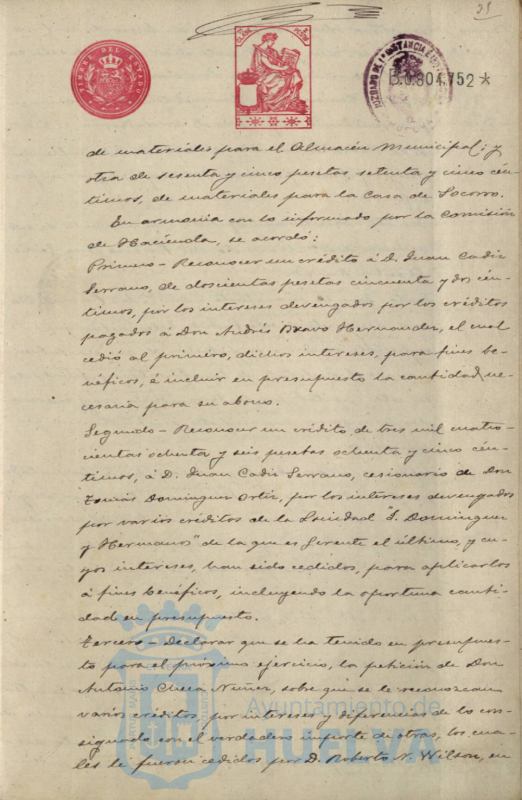 25
TIMBRE DEL ESTADO
JUZGADO DE 1ª INSTANCIA E
B.0.804.752 *
HUELVA
de materiales para el Almacén Municipal; y
otra de sesenta y cinco pesetas setenta y cinco cén-
timos, de materiales para la Casa de Socorro.
En armonia con lo informado por la Comisión
de Hacienda, se acordó:
Primero - Reconocer un crédito á D. Juan Cadiz
Serrano, de doscientas pesetas cincuenta y dos cén-
timos, por los intereses devengados por los créditos
pagados á Don Andrés Bravo Hernandez, el cual
cedió al primero, dichos intereses, para fines be-
néficos, é incluir en presupuesto la cantidad ne-
cesaria para su abono.
Segundo - Reconocer un crédito de tres mil cuatro-
cientas ochenta y seis pesetas ochenta y cinco cén-
timos, á D. Juan Cadiz Serrano, cesionario de Don
Tomás Dominguez Ortiz, por los intereses devengados
por varios créditos de la Sociedad "T. Dominguez
y Hermanos" de la que es Gerente el último, y cu-
yos intereses, han sido cedidos, para aplicarlos
á fines benéficos, incluyendo la oportuna canti-
dad en presupuesto.
Tercero - Declarar que se ha tenido en presupues-
to para el próximo ejercicio, la petición de Don
Antonio Checa Nuñez, sobre que se le reconozcan
varios créditos, por intereses y diferencias de lo con-
signado con el verdadero importe de otras, los cua-
les le fueron cedidos por D. Roberto N. Wilson, en
Ayuntamiento de
HUELVA